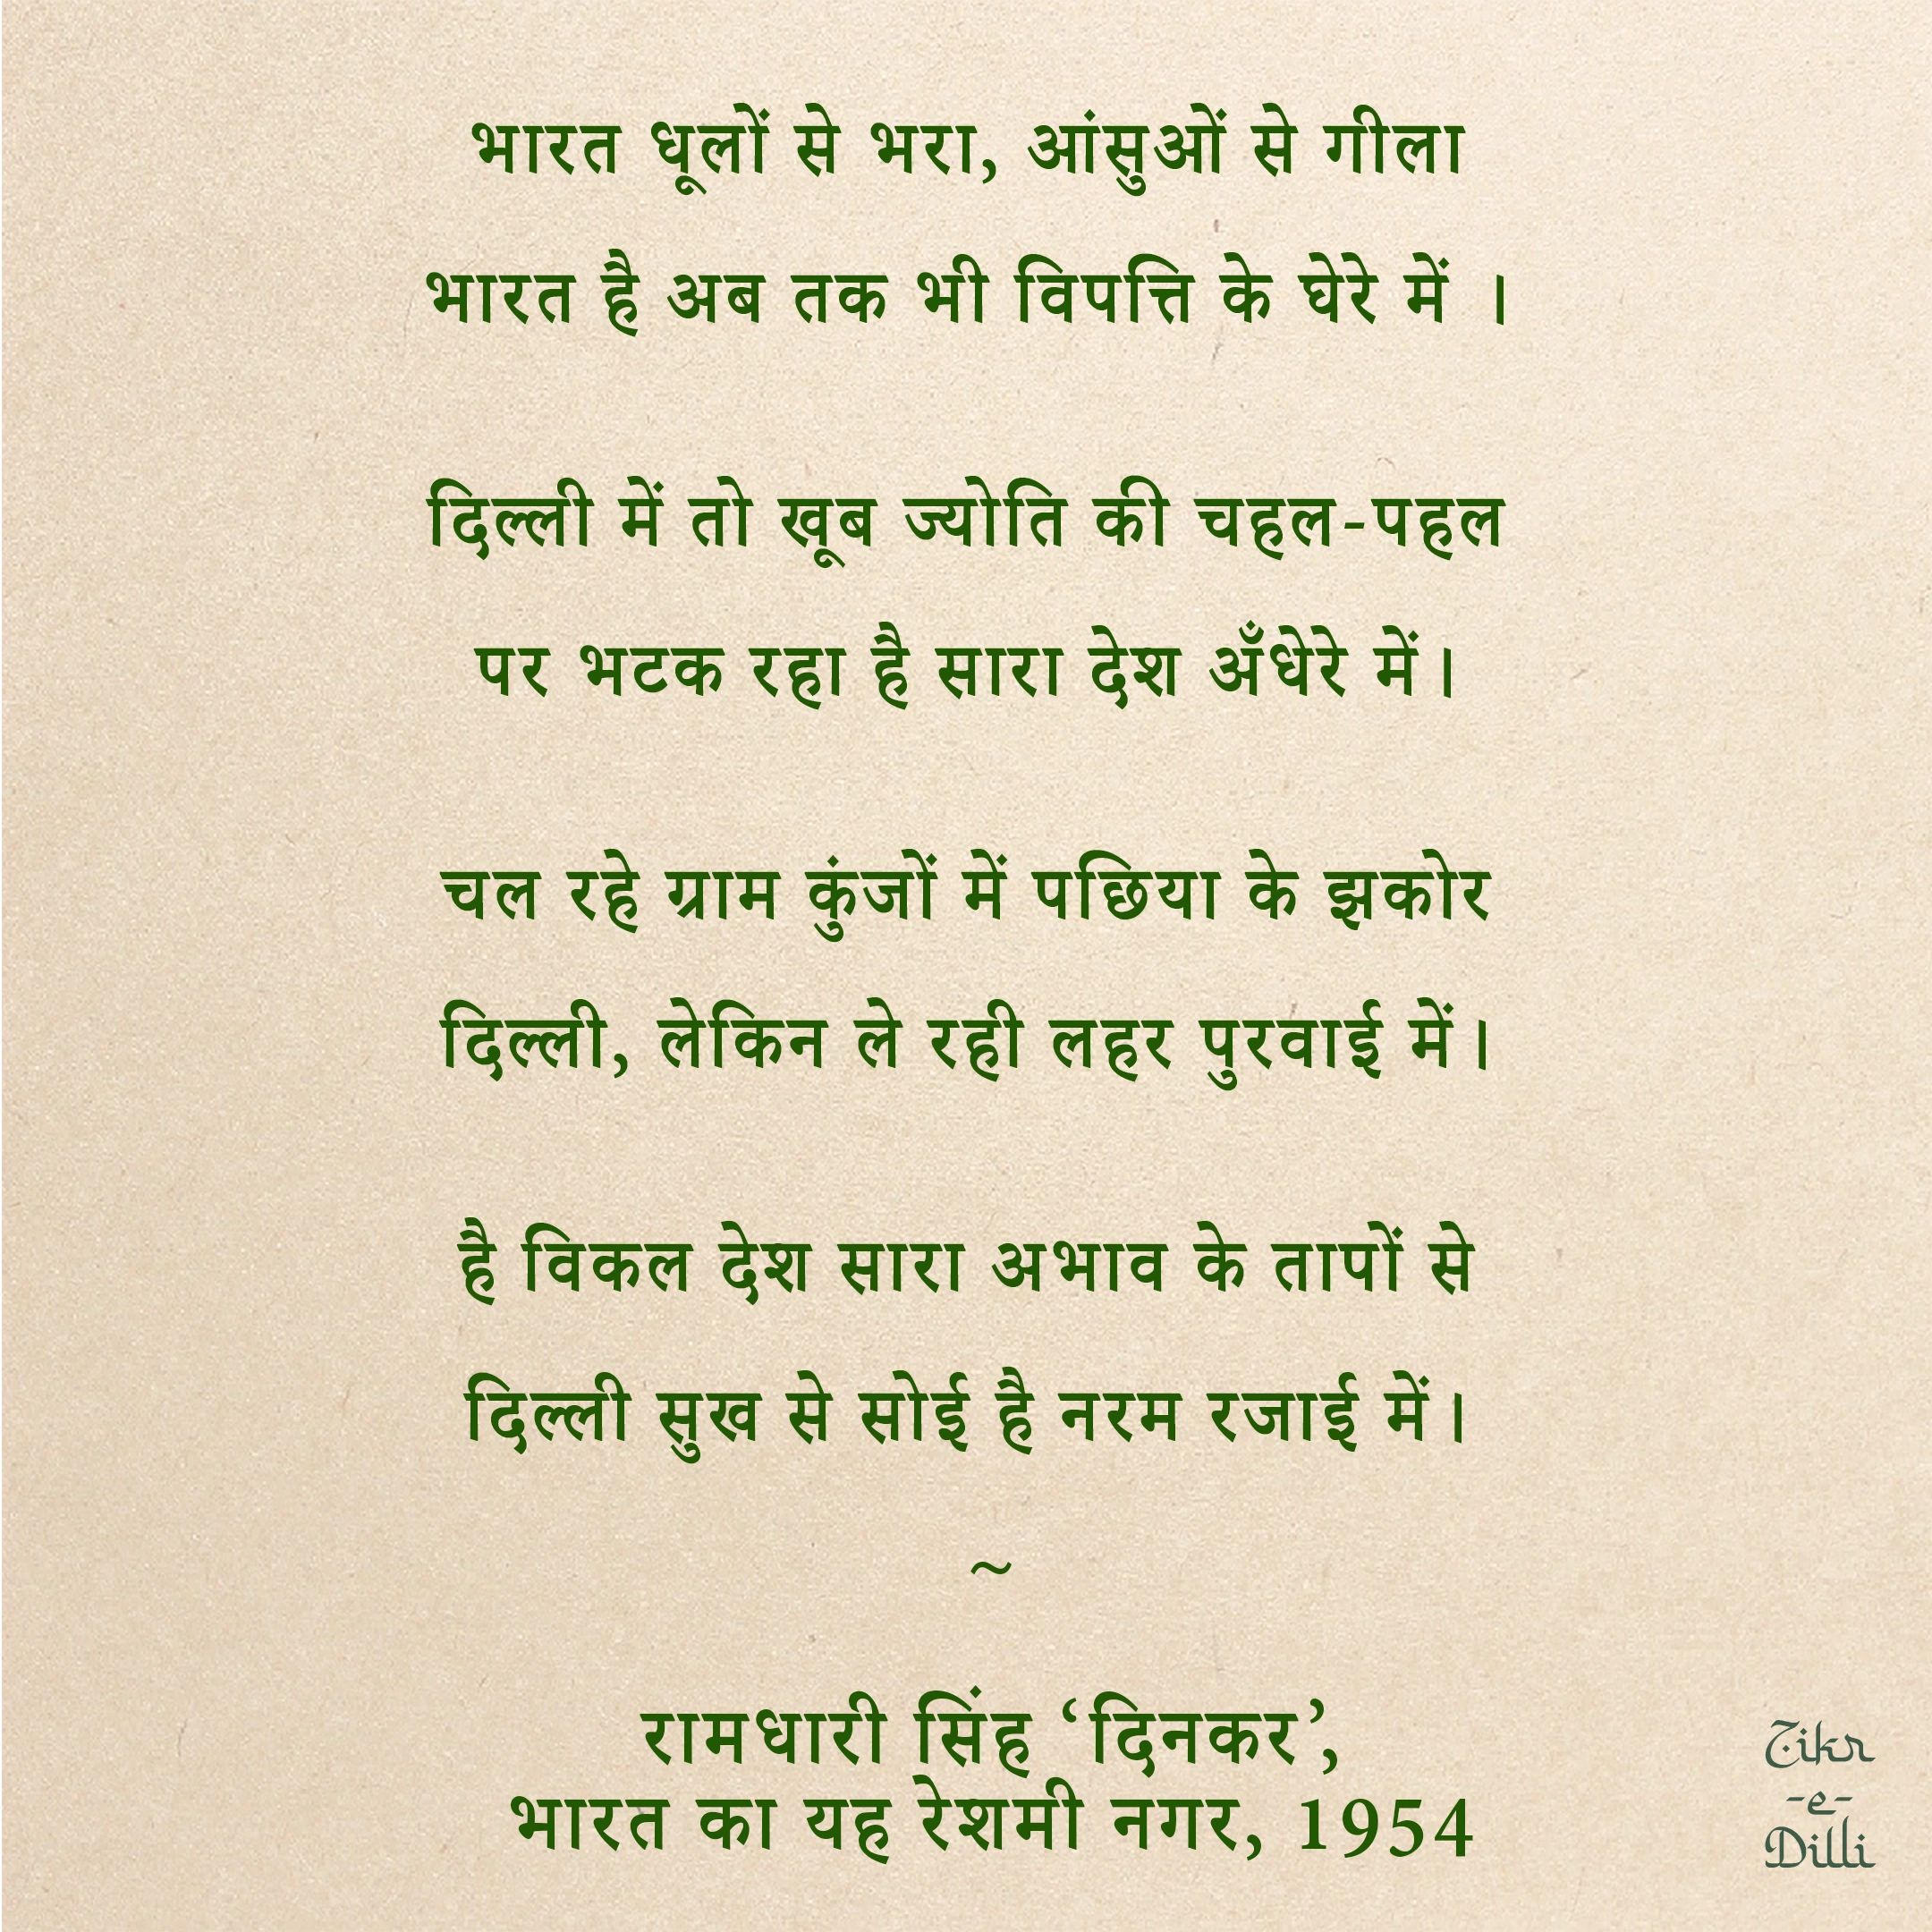 भारत धूलों से भरा, आंसुओं से गीला
भारत है अब तक भी विपत्ति के घेरे में ।
दिल्ली में तो खूब ज्योति की चहल-पहल
पर भटक रहा है सारा देश अँधेरे में।
चल रहे ग्राम कुंजों में पछिया के झकोर
दिल्ली, लेकिन ले रही लहर पुरवाई में।
है विकल देश सारा अभाव के तापों से
दिल्ली सुख से सोई है नरम रजाई में।
~
रामधारी सिंह ‘दिनकर’,
भारत का यह रेशमी नगर, 1954
Zikr
-e-
Dilli